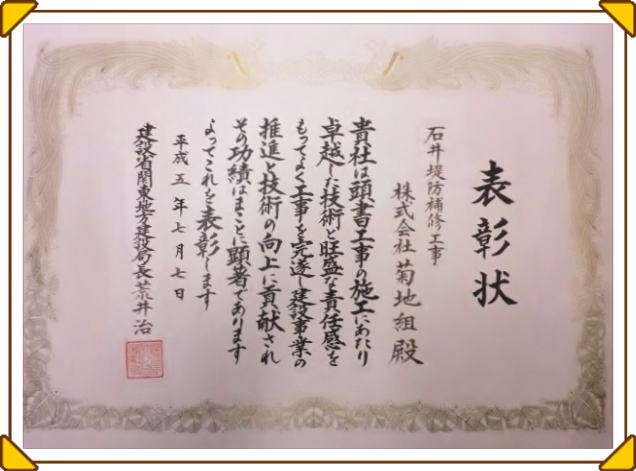 表彰状
石井堤防補修工事
株式会社菊地組殿
貴社は頭書工事の施工にあたり
卓越した技術と旺盛な責任感を
もってよく工事を完遂し建設事業の
推進と技術の向上に貢献され
その功績はまことに顕著であります
よってこれを表彰します
平成五年七月七日
建設省関東地方建設局長荒井治